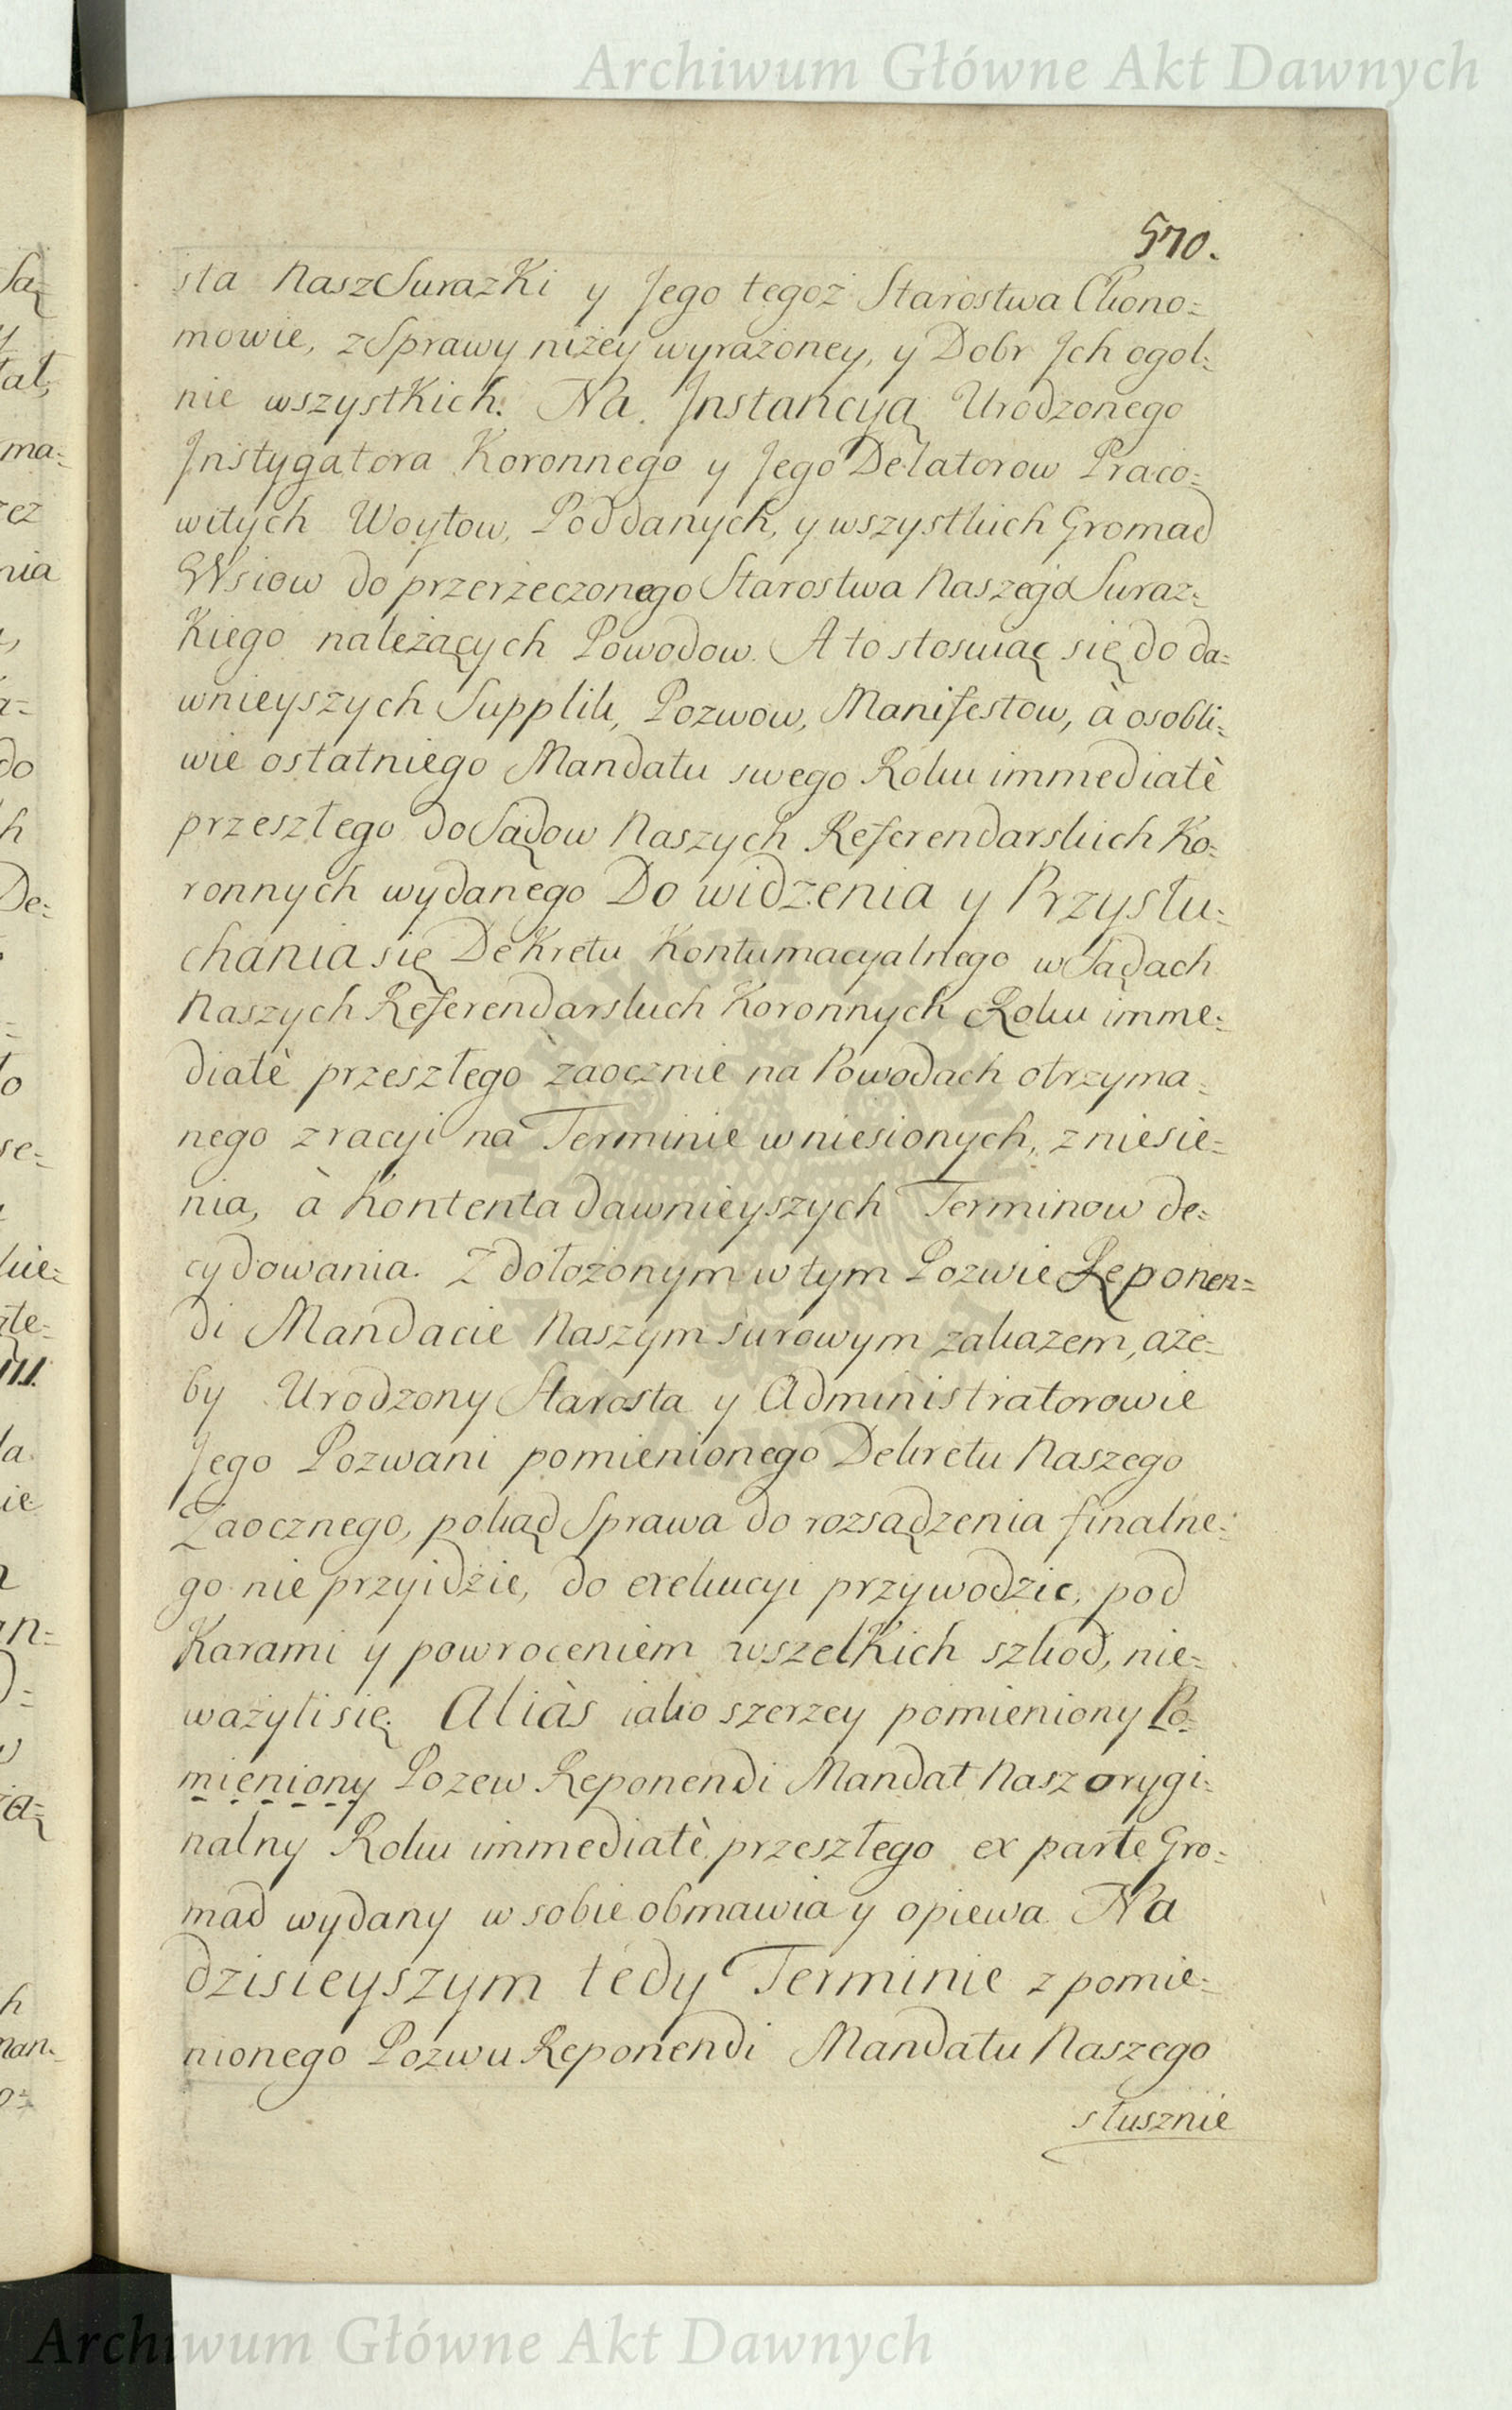 Archiwum Główne Akt Dawnych
570.
sta Nasz Surazki y Jego tegoż Starostwa Ekono=
mowie, z Sprawy niżey wyrażoney, y Dobr Jch ogol=
nie wszystkich. Na Jnstancyą Urodzonego
Jnstygatora Koronnego y Jego Delatorow Praco=
witych Woytow, Poddanych, y wszystkich Gromad
Wsiow do przerzeczonego Starostwa Naszego Suraz=
kiego należących Powodow. A to stosuiąc się do da=
wnieyszych Supplik, Pozwow, Manifestow, à osobli=
wie ostatniego Mandatu swego Roku immediatè
przeszłego do Sądow Naszych Referendarskich Ko=
ronnych wydanego Do widzenia y Przysłu=
chania się Dekretu Kontumacyalnego w Sądach
Naszych Referendarskich Koronnych Roku imme=
diatè przeszłego zaocznie na Powodach otrzyma=
nego z racyi na Terminie wniesionych, zniesie=
nia, à Kontenta dawnieyszych Terminow de=
cydowania. Z dołożonym w tym Pozwie Reponen=
di Mandacie Naszym surowym zakazem, aże=
by Urodzony Starosta y Administratorowie
Jego Pozwani pomienionego Dekretu Naszego
Zaocznego, pokąd Sprawa do rozsądzenia finalne=
go nie przyidzie, do exekucyi przywodzic, pod
Karami y powroceniem wszelkich szkod, nie=
ważyli się. Aliàs iako szerzey pomieniony Po=
mieniony Pozew Reponendi Mandat Nasz orygi=
nalny Roku immediatè przeszłego ex parte Gro=
mad wydany w sobie obmawia y opiewa Na
dzisieyszym tedy Terminie z pomie=
nionego Pozwu Reponendi Mandatu Naszego
słusznie
Archiwum Główne Akt Dawnych